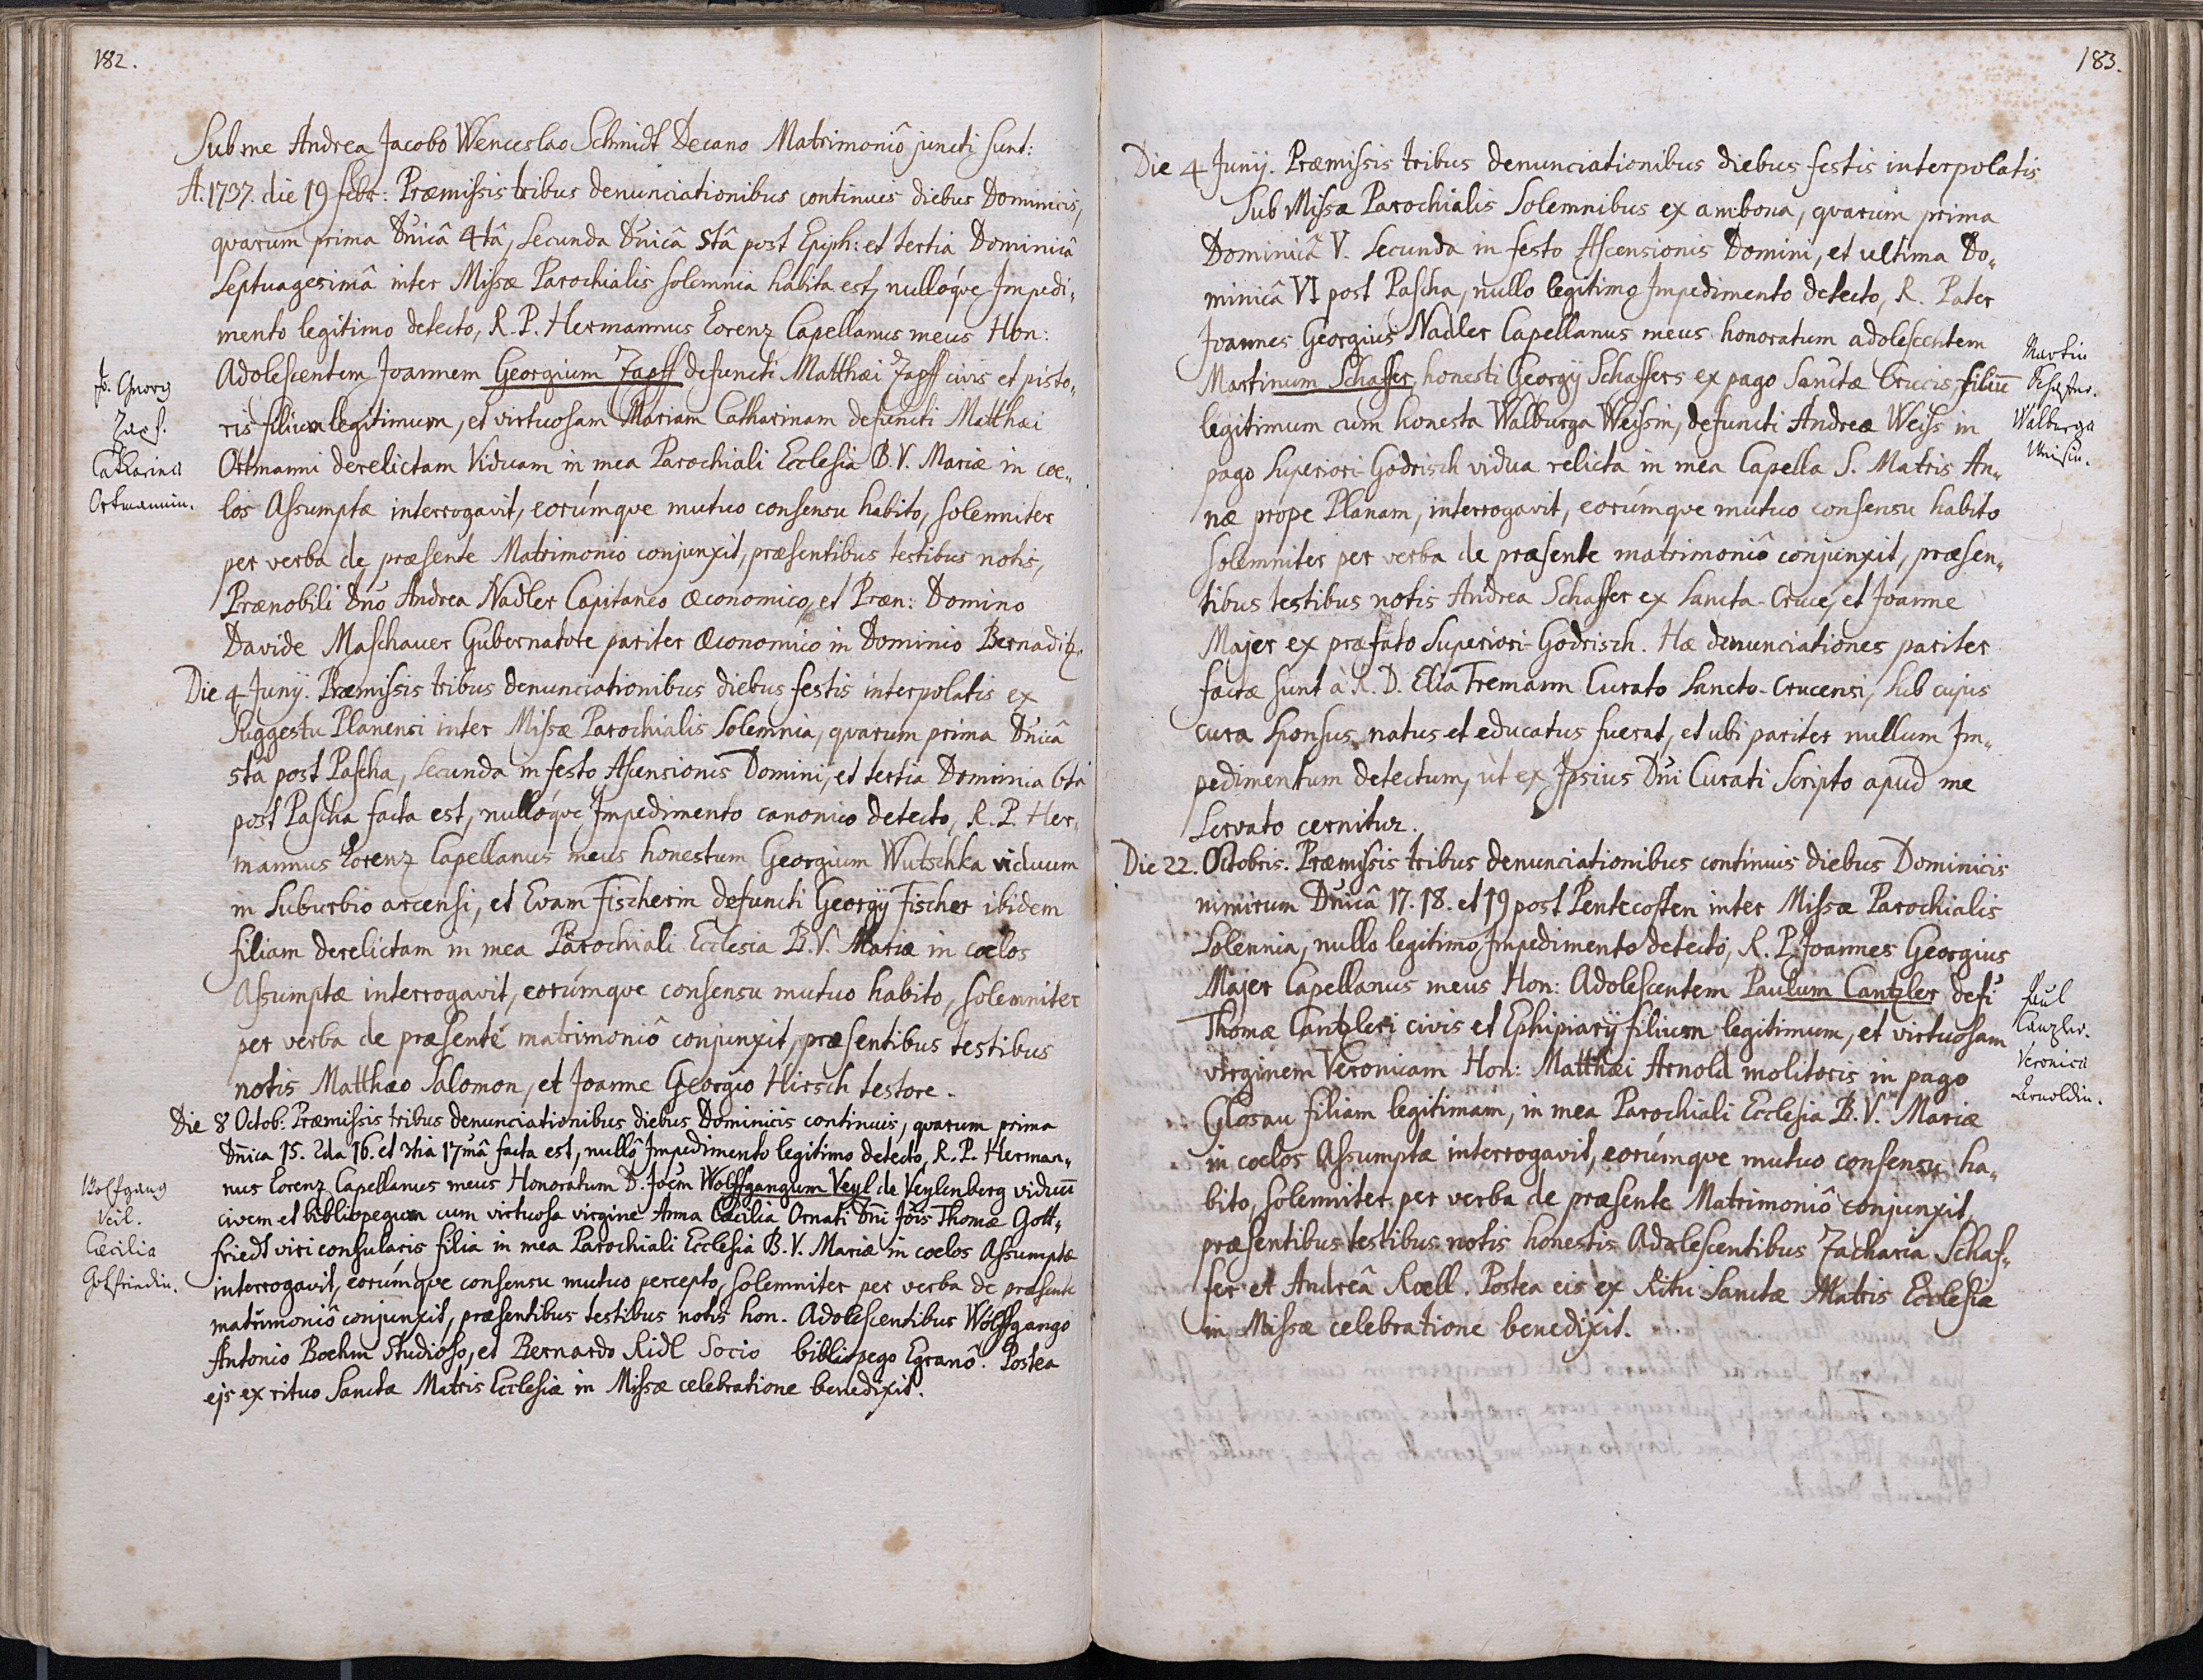 182.
Sub me Andrea Jacobo Wenceslao Schmidt Decano Matrimoniô juncti sunt:
A. 1737. die 19 febr: Præmissis tribus denunciationibus continuis diebus Dominicis,
qvarum prima Dnicâ 4tâ, secunda Dnicâ 5tâ post Epiph: et tertia Dominicâ
Septuagesimâ inter Missæ Parochialis solemnia habita est, nullóqve Impedi„
mento legitimo detecto, R. P. Hermannus Lorenz Capellanus meus Hon:
Adolescentem Joannem Georgium Zapff defuncti Matthæi Zapff civis et pisto„
ris filium legitimum, et virtuosam Mariam Catharinam defuncti Matthæi
Ortmanni derelictam Viduam in mea Parochiali Ecclesia B. V. Mariæ in coe„
los Assumptæ interrogavit, eorúmqve mutuo consensu habito, solemniter
per verba de præsente Matrimonio conjunxit, præsentibus testibus notis,
Prænobili Dno Andrea Nadler Capitaneo œconomico, et Præn: Domino
Davide Maschauer Gubernatore pariter œconomico in Dominio Bernaditz.
Georg
Zapf.
Catharina
Ortmannin.
Die 4 Junij. Præmissis tribus denunciationibus diebus festis interpolatis ex
suggestu Planensi inter Missæ Parochialis Solemnia, qvarum prima Dnicâ
5tâ post Pascha, secunda in festo Ascensionis Domini, et tertia Dominica 6tâ
post Pascha facta est, nullóqve Impedimento canonico detecto, R. P. Her„
mannus Lorenz Capellanus meus honestum Georgium Wutschka viduum
in Suburbio arcensi, et Evam Fischerin defuncti Georgij Fischer ibidem
filiam derelictam in mea Parochiali Ecclesia B. V. Mariæ in coelos
Assumptæ interrogavit, eorúmqve consensu mutuo habito, solemniter
per verba de præsente matrimoniô conjunxit, præsentibus testibus
notis Matthæo Salomon, et Joanne Georgio Hirsch testore.
Die 8 Octob: Præmissis tribus denunciationibus diebus Dominicis continuis, qvarum prima
Dnica 15. 2da 16. et 3tia 17mâ facta est, nullô Impedimento legitimo detecto, R. P. Herman„
nus Lorenz Capellanus meus Honoratum D. Joem Wolffgangum Veyl de Veylenberg viduū
civem et bibliopegum cum virtuosa virgine Anna Cæcilia Ornati Dni Jois Thomæ Gott„
friedt viri consularis filia in mea Parochiali Ecclesia B. V. Mariæ in coelos Assumptæ
interrogavit, eorúmqve consensu mutuo percepto, solemniter per verba de præsente
matrimoniô conjunxit, præsentibus testibus notis hon. Adolescentibus Wolffgango
Antonio Boehm Studioso, et Bernardo Ridl Socio bibliopego Egranô. Postea
ejs ex rituo Sanctæ Matris Ecclesiæ in Missæ celebratione benedixit.
Wolfgang
Veil.
Cæcilia
Gotfriedin.
183.
Die 4 Junij. Præmissis tribus denunciationibus diebus festis interpolatis
Sub Missæ Parochialis Solemnibus ex ambona, qvarum prima
Dominicâ V. Secunda in festo Ascensionis Domini, et ultima Do„
minicâ VI post Pascha, nullo legitimo Impedimento detecto, R. Pater
Joannes Georgius Nadler Capellanus meus honoratum adolescentem
Martinum Schaffer, honesti Georgij Schaffers ex pago Sanctæ Crucis, filiū
legitimum cum honesta Walburga Weissin, defuncti Andreæ Weiss in
pago Superiori-Godrisch vidua relicta in mea Capella S. Matris An„
næ prope Planam, interrogavit, eorúmqve mutuo consensu habito
solemniter per verba de præsente matrimoniô conjunxit, præsen„
tibus testibus notis Andrea Schaffer ex Sancta-Cruce, et Joanne
Majer ex præfato Superiori-Godrisch. Hæ denunciationes pariter
factæ sunt à R. D. Elia Tremann Curato Sancto-Crucensi, sub cujus
cura Sponsus natus et educatus fuerat, et ubi pariter nullum Im„
pedimentum detectum, ùt ex Ipsius Dni Curati Scripto apud me
Servato cernitur.
Martin
Schafer.
Walburga
Weisin.
Die 22. Octobris. Præmissis tribus denunciationibus continuis diebus Dominicis
nimirum Dnicâ 17. 18. et 19 post Pentecosten inter Missæ Parochialis
Solennia, nullo legitimo Impedimento detecto, R. P. Joannes Georgius
Majer Capellanus meus Hon: Adolescentem Paulum Cantzler defi
Thomæ Cantzleri civis et Ephipiarij filium legitimum, et virtuosam
virginem Veronicam Hon: Matthæi Arnold molitoris in pago
Glosau filiam legitimam, in mea Parochiali Ecclesia B. V. Mariæ
in coelos Assumptæ interrogavit, eorúmqve mutuo consensu ha„
bito, solemniter per verba de præsente Matrimoniô conjunxit,
præsentibus testibus notis honestis Adolescentibus Zacharia Schaf„
fer et Andreâ Roell. Postea eis ex Ritu Sanctæ Matris Ecclesiæ
in Missæ celebratione benedixit.
Paul
Canzler.
Veronica
Arnoldin.